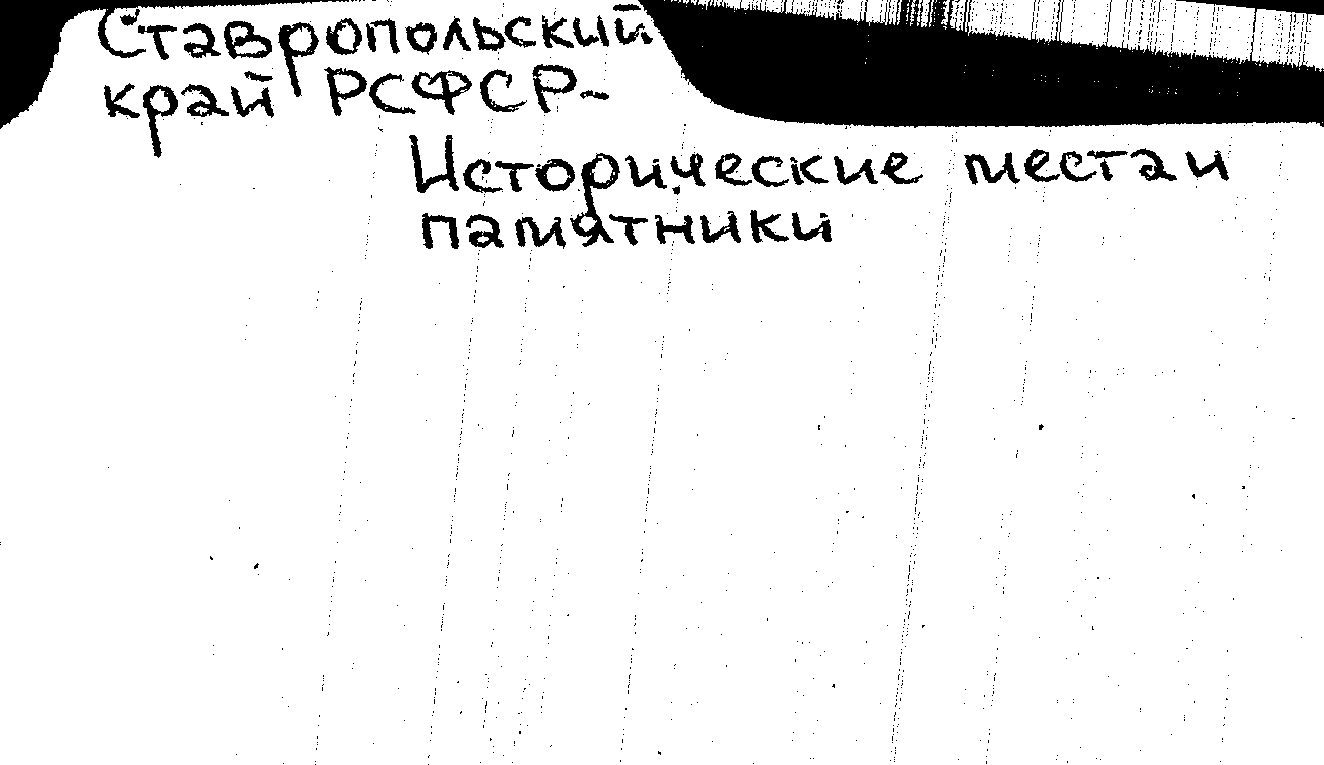 Ставропольский
край РСФСР-
Исторические места и
памятники